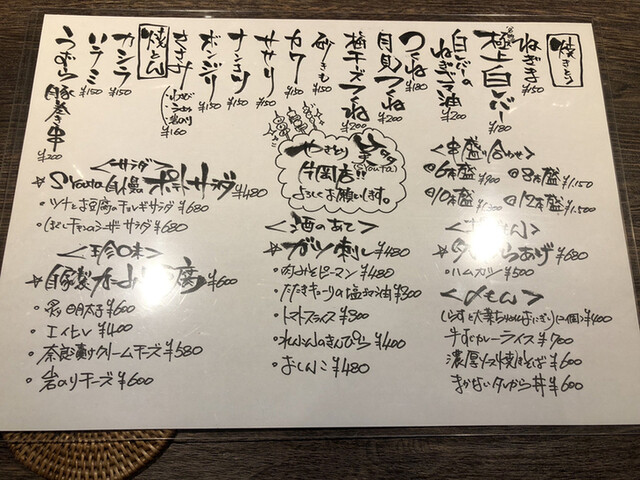 焼きとり
ねぎま ¥150
極上白レバー ¥180
白レバーのねぎゴマ油 ¥200
つくね ¥180
月見つくね ¥200
梅チーズつくね ¥200
砂ぎも ¥150
カワ ¥150
ササリ ¥150
ナンコツ ¥150
ボンジリ ¥150
ささみ ¥160
焼とん
カシラ ¥150
ハラミ ¥150
うずら豚巻き串 ¥200
やきとり 笑たta
片岡店!!
よろしくお願いします。
<サラダ>
☆ 自慢ポテトサラダ ¥480
・ツナとお豆腐のチョレギサラダ ¥680
・ ¥680
<珍味>
☆ 自家製 腐 ¥600
・炙り明太子 ¥600
・エイヒレ ¥400
・奈良漬けクリームチーズ ¥580
・岩のりチーズ ¥600
<酒のあて>
☆ ガツ刺し ¥480
・肉みそピーマン ¥480
・たたきキューリの塩ゴマ油 ¥300
・トマトスライス ¥300
・れんこんのきんぴら ¥400
・おしんこ ¥480
<串盛り合わせ>
◎6本盛 ¥900 ◎8本盛 ¥1.150
◎10本盛 ◎12本盛 ¥1.500
らあげ ¥680
・ハムカツ ¥500
<〆もん>
しらすと大葉ちりめんおにぎり(二個) ¥400
牛すじカレーライス ¥700
濃厚ソース焼きそば ¥600
まかないタレから丼 ¥600